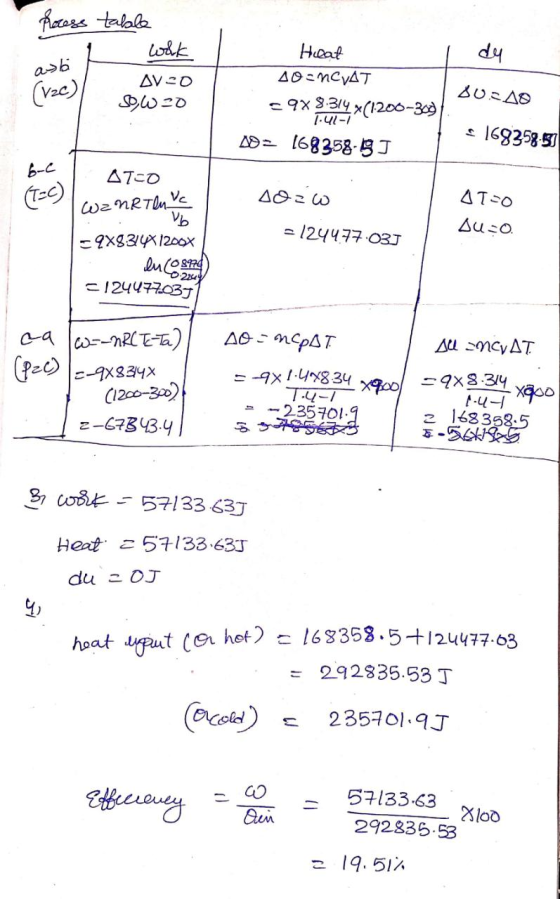 Process table
Work Heat dy
a→b
(V=C)
ΔV=0
So, W=0
ΔQ=nCvΔT
= 9 × 8.314/1.41-1 × (1200-300)
ΔQ = 168358.5 J
ΔU=ΔQ
= 168358.5J
b-c
(T=C)
ΔT=0
W=nRTln Vc/Vb
=9×8314×1200×
ln(0.8976/0.2244)
=124477.03J
ΔQ=W
=124477.03J
ΔT=0
Δu=0
c-a
(p=c)
W=-nR(Tc-Ta)
=-9×8.34×
(1200-300)
=-67343.4
ΔQ=nCpΔT
= -9× 1.4×8.34/1.4-1 ×900
= -235701.9
Δu=nCvΔT
=9× 8.314/1.4-1 ×900
= 168358.5
3, Work = 57133.63J
Heat = 57133.63J
du = 0J
4,
heat input (Or hot) = 168358.5+124477.03
= 292835.53 J
(Qcold) = 235701.9J
Efficiency = W/Qin = 57133.63/292835.53 ×100
= 19.51%